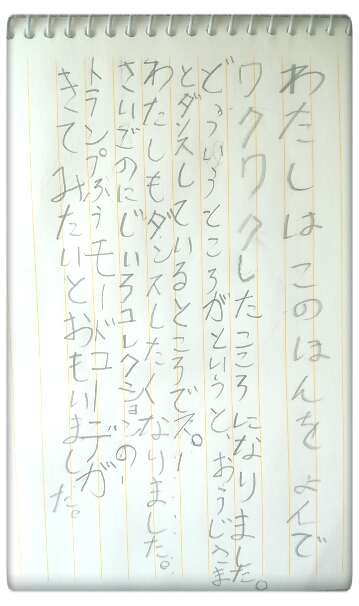 わたしはこのほんをよんで
ワクワクしたこころになりました。
どういうところがというと、おうじさま
とダンスしているところでス。
わたしもダンスしたくなりました。
さいごのにじいろコレクションの
トランプふうモードコーデが
きてみたいとおもいました。